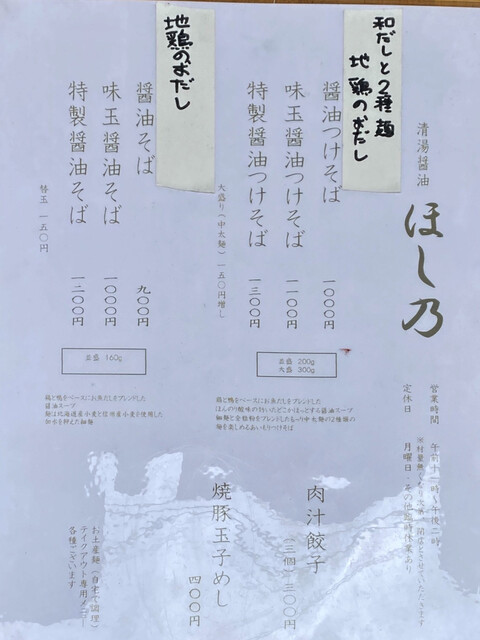 清湯醤油
ほし乃
営業時間 午前十一時~午後
※材料無くなり次第、閉店とさせていただきます
定休日 月曜日・その他臨時休業あり
和だしと2種麺
地鶏のおだし
醤油つけそば 一〇〇〇円
味玉醤油つけそば 一一〇〇円
特製醤油つけそば 一三〇〇円
大盛り(中太麺)一五〇円増し
並盛 200g
大盛 300g
鶏と鴨をベースにお魚だしをブレンドした
ほんのり酸味の付いたどこかほっとする醤油スープ
細麺と全粒粉をブレンドしたもっちり中太麺の2種類の
麺を楽しめるあいもりつけそば
地鶏のおだし
醤油そば 九〇〇円
味玉醤油そば 一〇〇〇円
特製醤油そば 一二〇〇円
替玉 一五〇円
並盛 160g
鶏と鴨をベースにお魚だしをブレンドした
醤油スープ
麺は北海道産小麦と信州産小麦を使用した
加水を抑えた細麺
肉汁餃子
(三個)三〇〇円
焼豚玉子めし
四〇〇円
お土産麺(自宅で調理)
テイクアウト専用メニュー
各種ございます